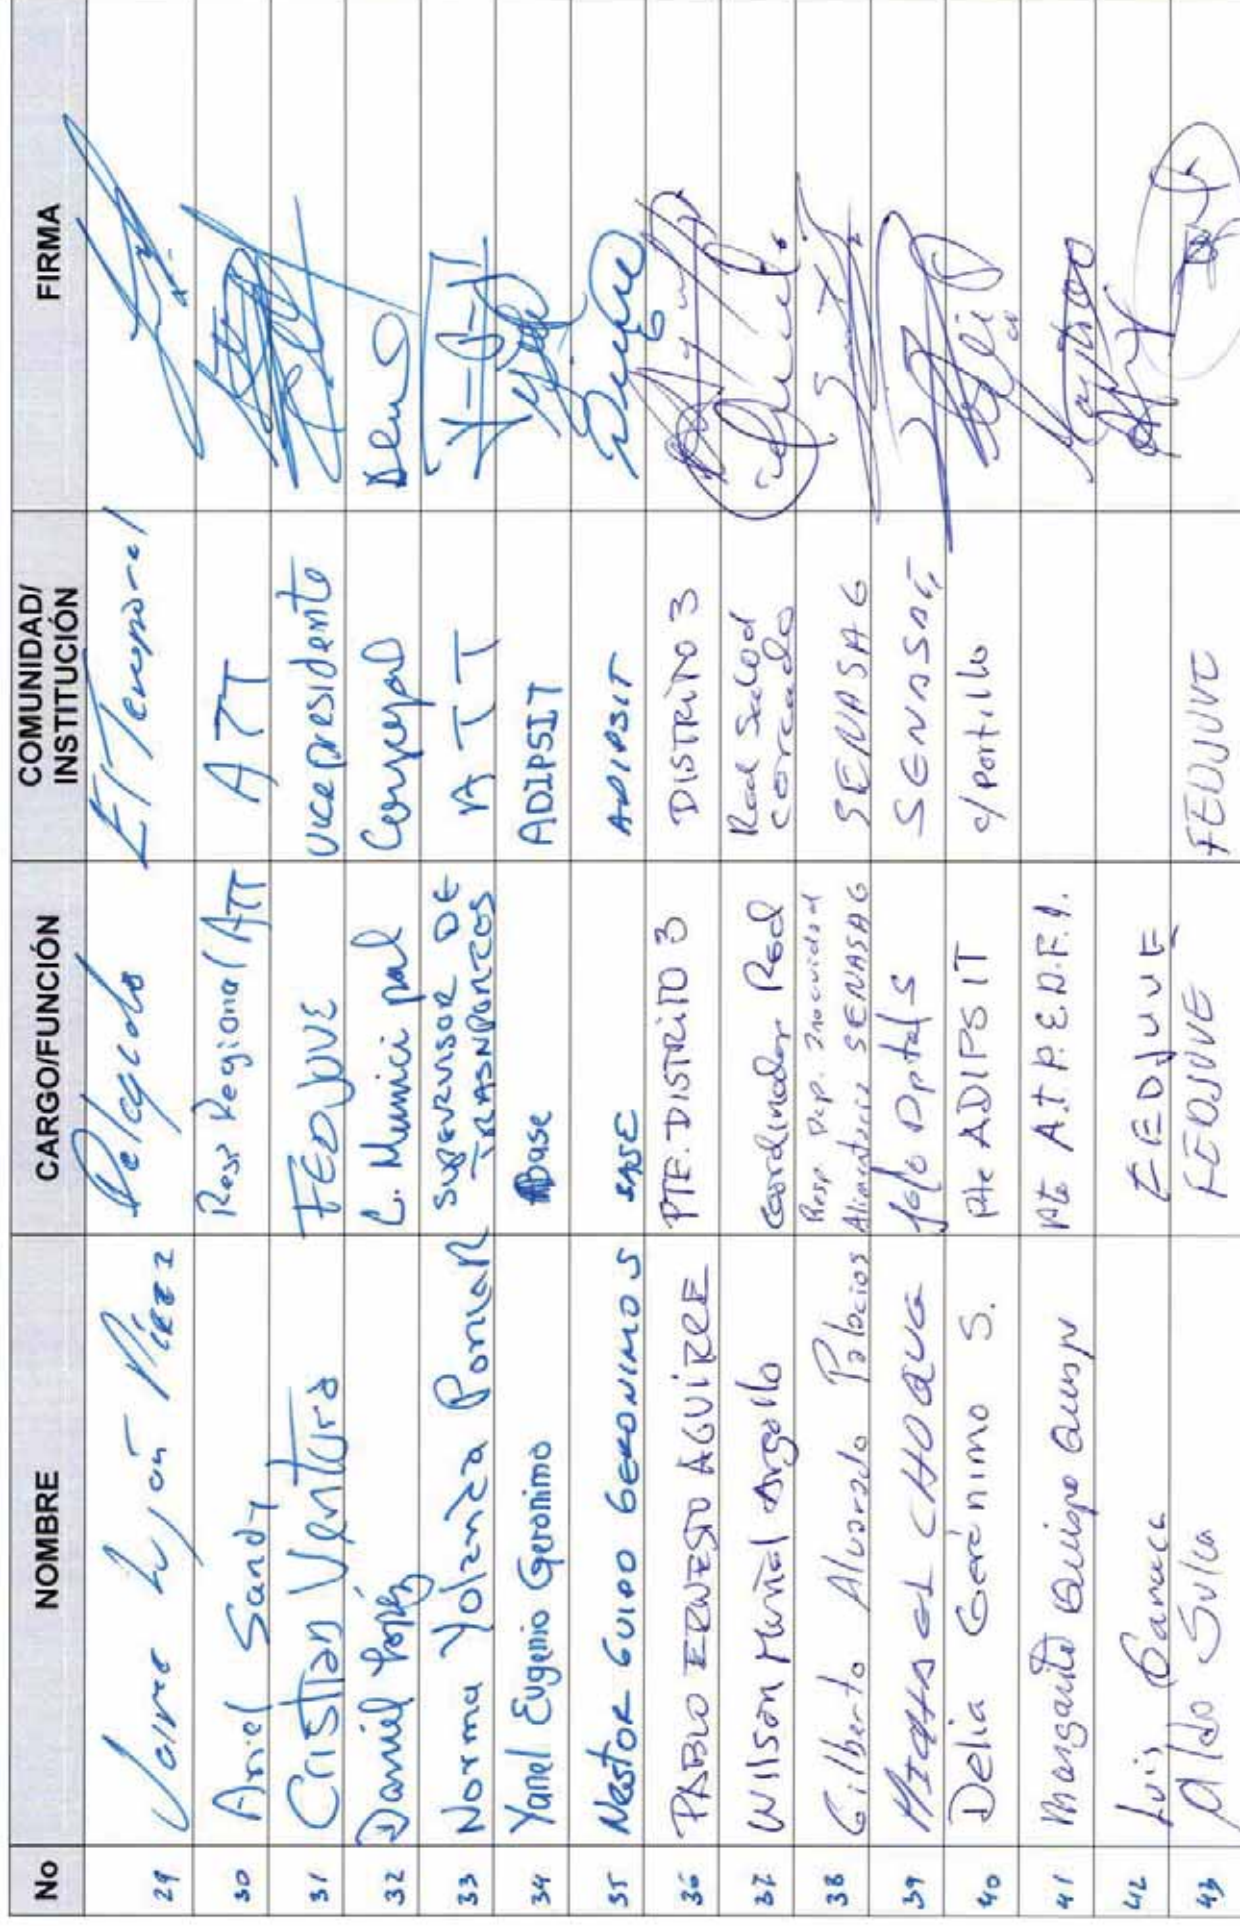 No NOMBRE CARGO/FUNCIÓN COMUNIDAD/ INSTITUCIÓN FIRMA
29 Jaime Luján Pérez Delegado El Temporal
30 Ariel Sandy Resp Regional ATT ATT
31 Cristian Ventura FEDJUVE Vicepresidente
32 Daniel C. Municipal
33 Norma Yolanda Pomar SUPERVISOR DE TRASNPORTES ATT
34 Yanel Eugenio Geronimo Base ADIPSIT
35 Nestor GUIDO GERONIMO S ADIPSIT
36 PABLO ERNESTO AGUIRRE PTE. DISTRITO 3 DISTRITO 3
37 Wilson Muriel Argollo Coordinador Red Red Salud Cercado
38 Gilberto Alvarado Palacios Resp. Dep. Inocuidad Alimentaria SENASAG SENASAG
39 CHOQUE Dptal S SENASAG
40 Delia Gerónimo S. Pte ADIPSIT c/ Portillo
41 Margarita Quispe Quispe Pte A.I.P.E.D.F.A.
42 Luis FEDJUVE
43 Aldo Sulca FEDJUVE FEDJUVE